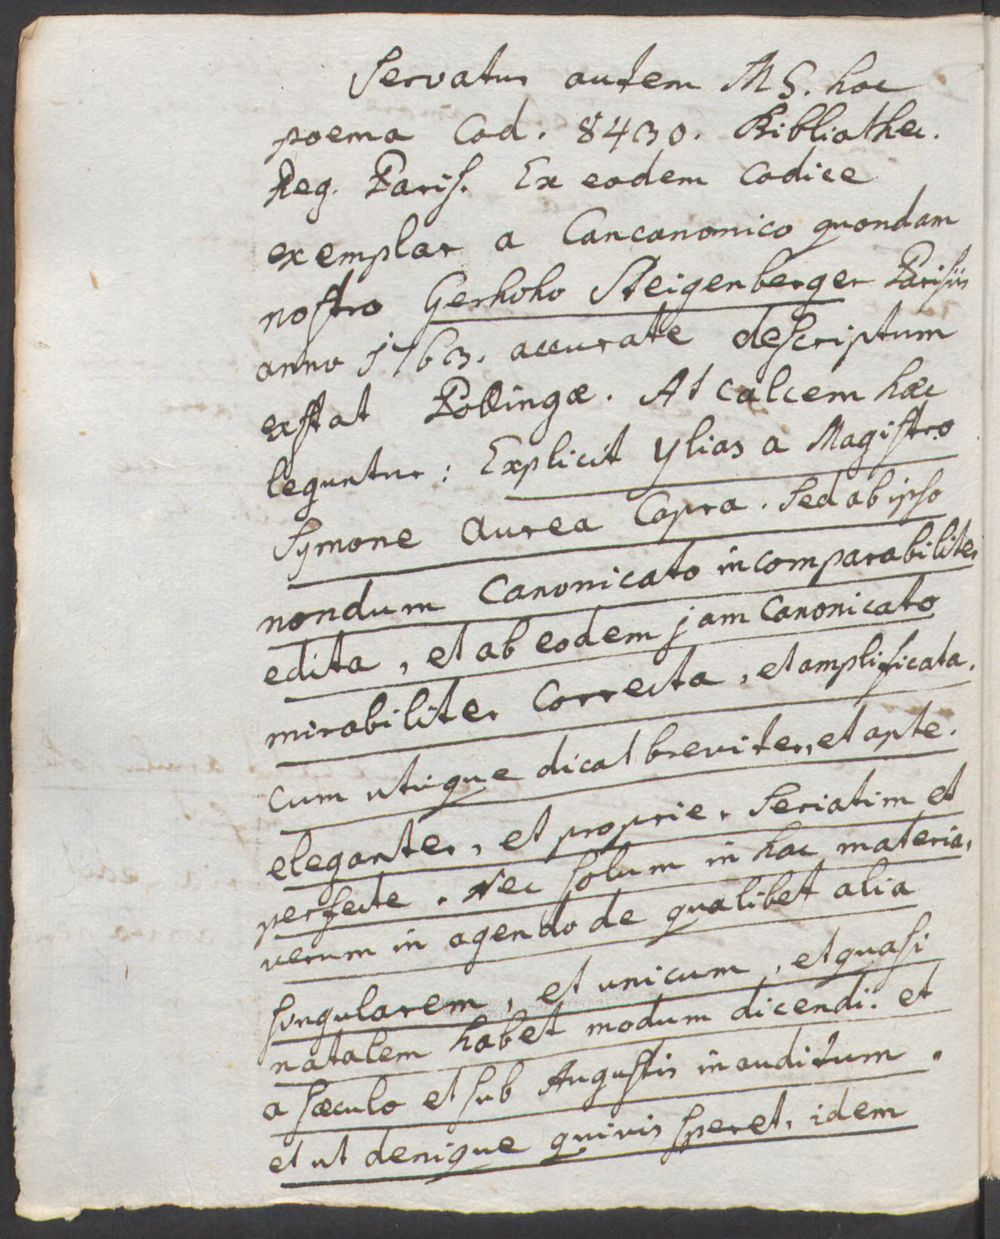 Servatur autem MS. hoc
poema Cod. 8430. Bibliothec.
Reg. Paris. Ex eodem Codice
exemplar a Concanonico quondam
nostro Gerhoho Steigenberger Parisiis
anno 1763. accurate descriptum
exstat Pollingæ. At calcem hæc
leguntur: Explicit Ylias a Magistro
Symone Aurea Capra. Sed ab ipso
nondum Canonicato incomparabiliter
edita, et ab eodem jam Canonicato
mirabiliter Correcta, et amplificata.
Cum utique dicat breviter, et apte.
eleganter, et proprie, Seriatim et
perfecte. Nec solum in hac materia,
verum in agendo de qualibet alia
singularem, et unicum, et quasi
natalem habet modum dicendi: et
a sæculo et sub Augustis inauditum.
et ut denique quivis speret, idem